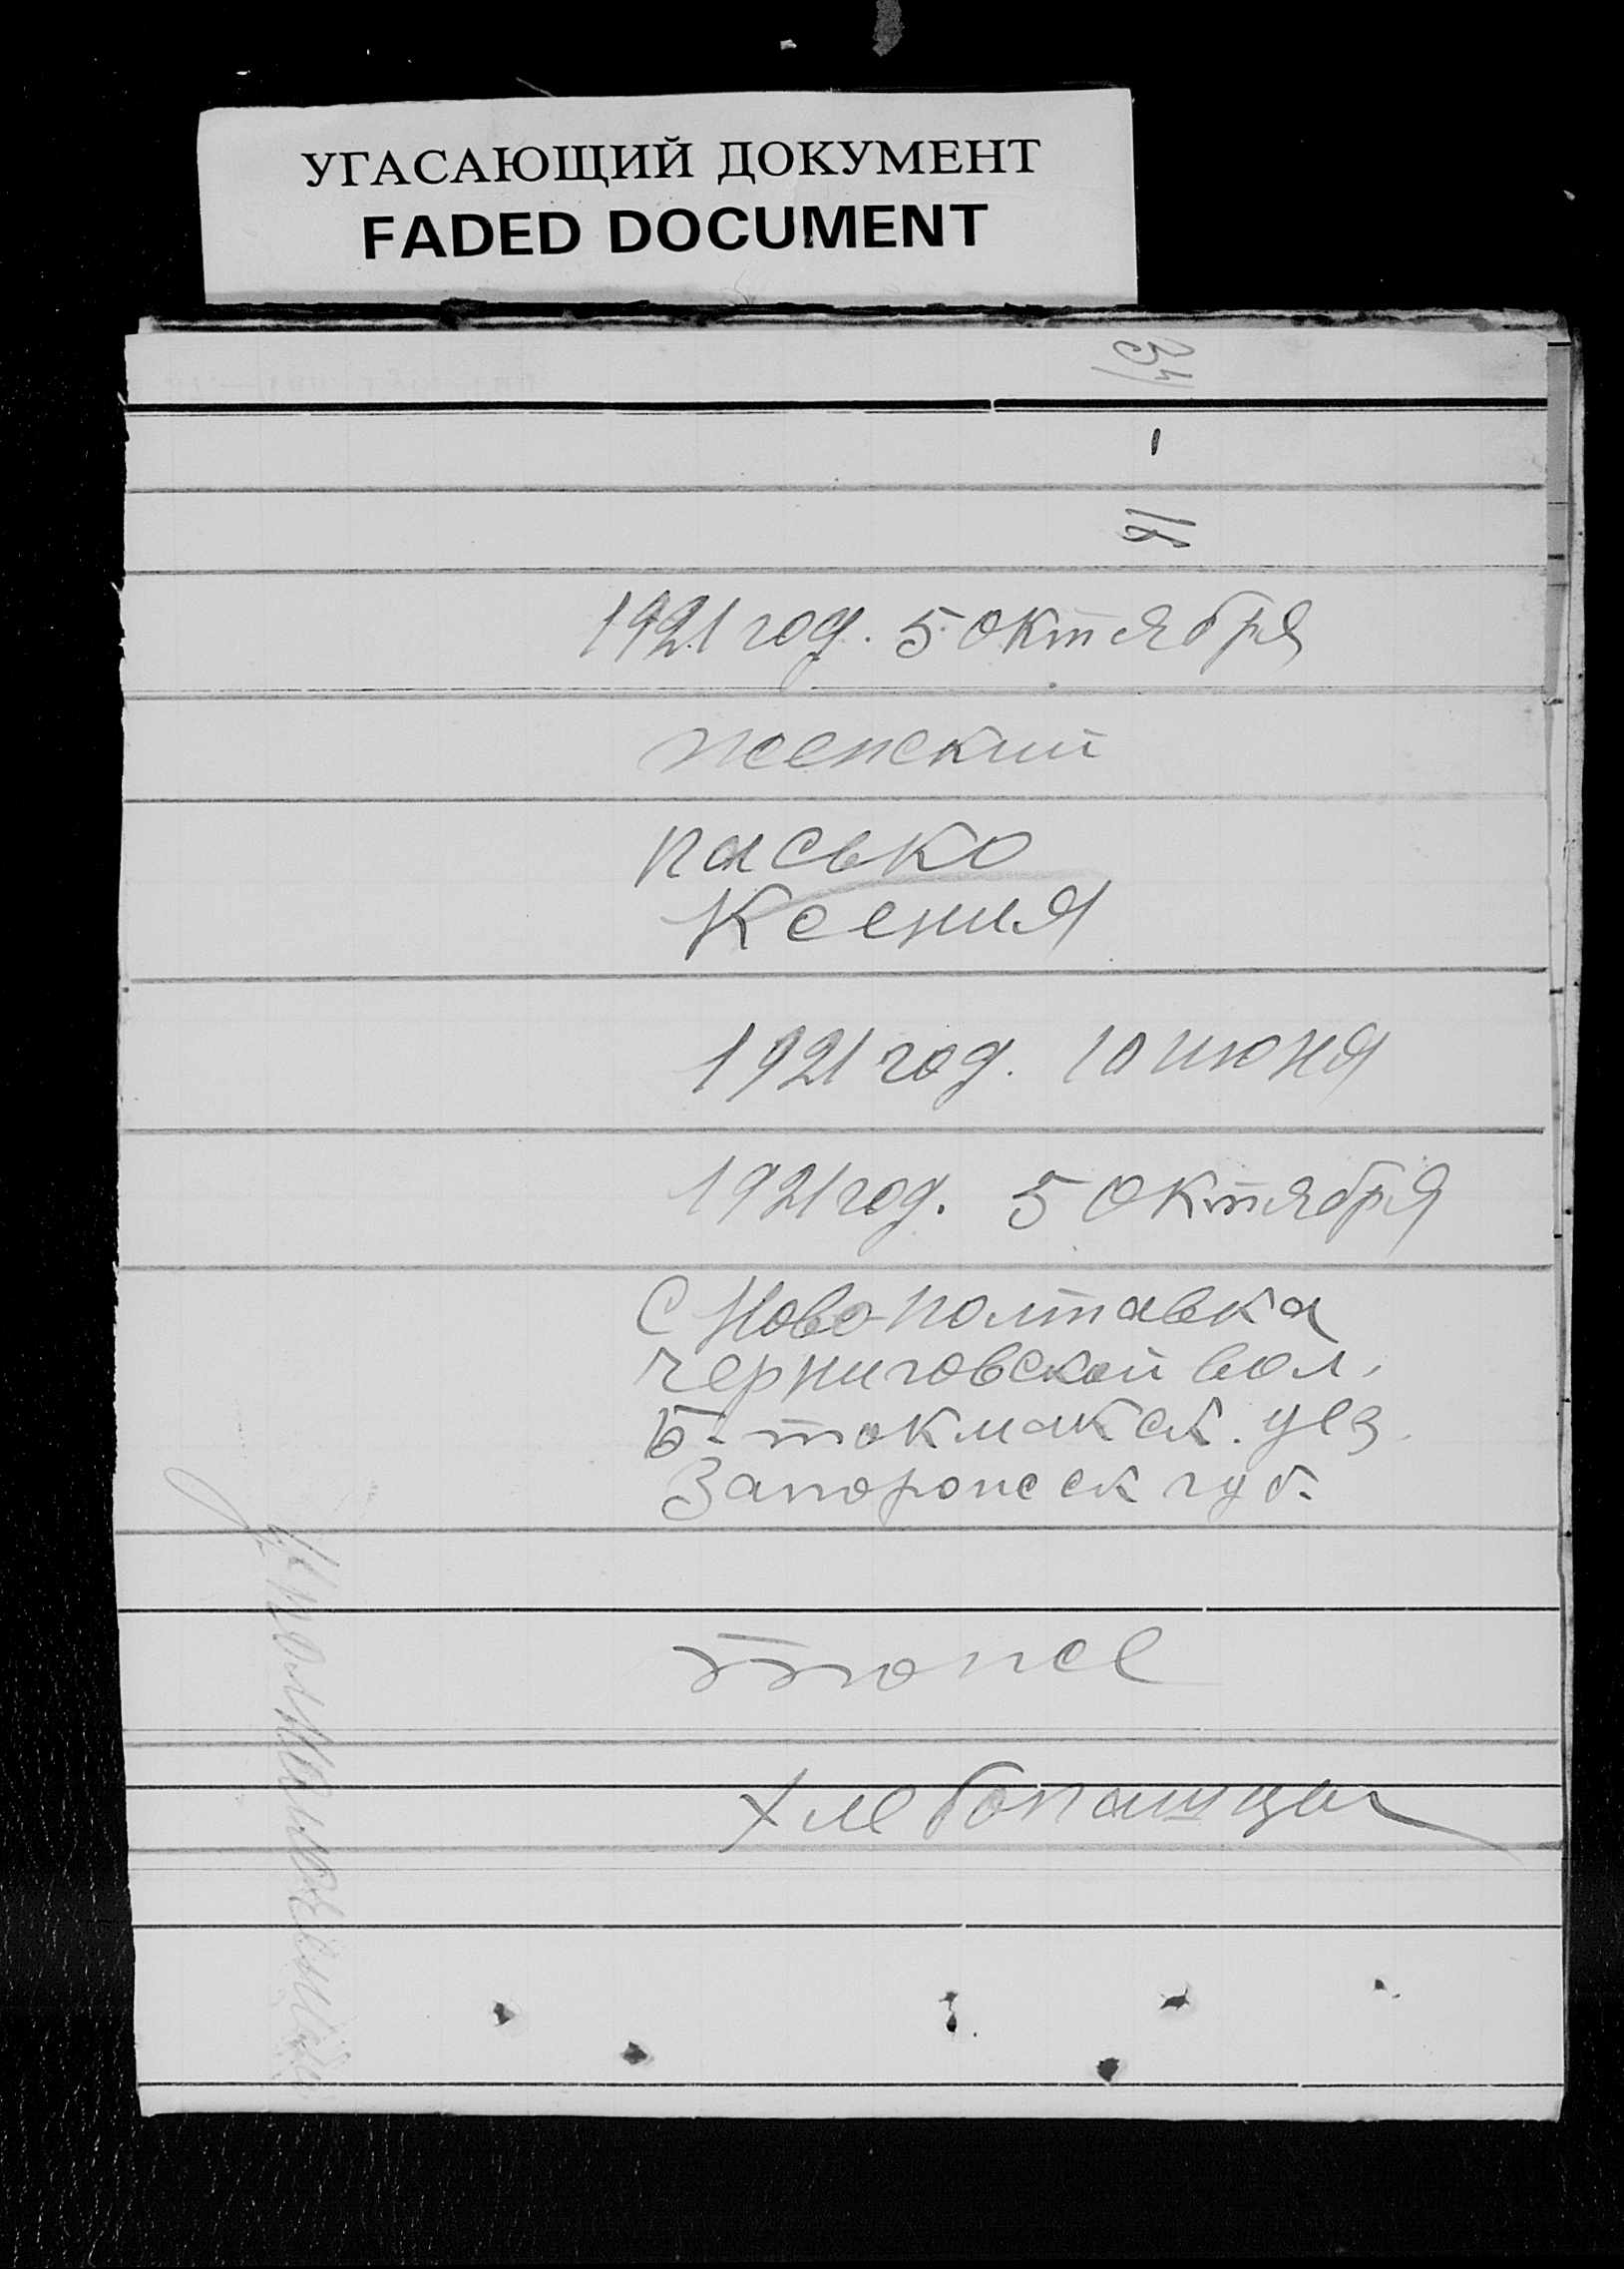 УГАСАЮЩИЙ ДОКУМЕНТ
FADED DOCUMENT
34
1921 год. 5 октября
женский
пасько
Ксения
1921 год. 10 июня
1921 год. 5 октября
С Ново-полтавка
черниговской вол.
Б-токмакск. уез.
Запорожск губ.
тоже
хлебопашцы